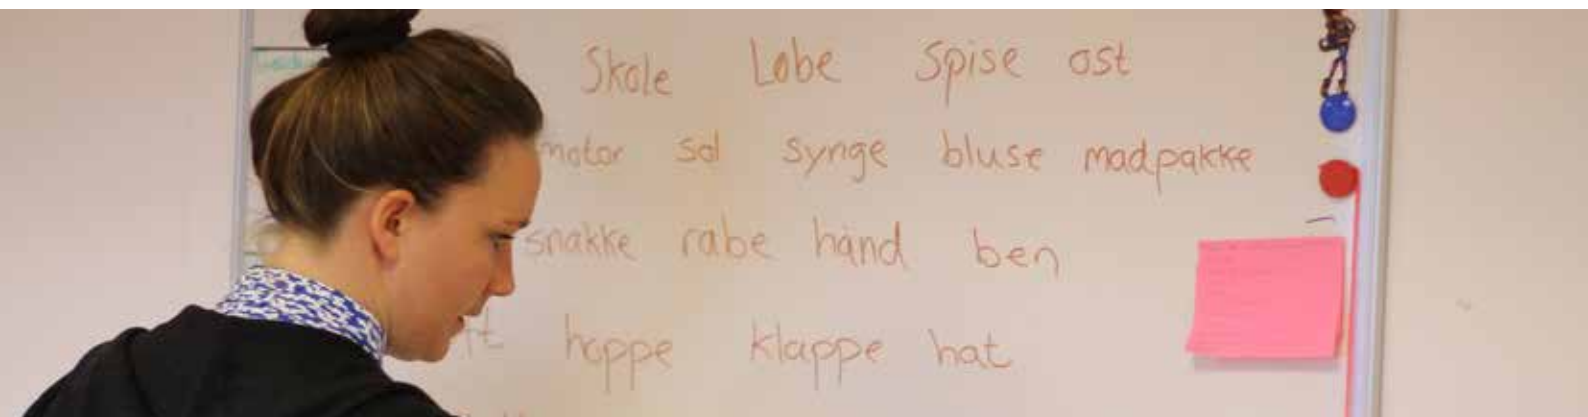 Skole Løbe Spise ost
motor sol synge bluse madpakke
snakke råbe hånd ben
hoppe klappe hat